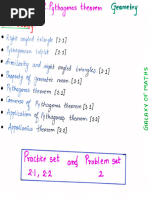 2. Pythagoras theorem Geometry
Right angled triangle [2.1]
Pythagorean triplet [2.1]
Similarity and right angled triangles [2.1]
Theorem of geometric mean [2.1]
Pythagoras theorem [2.1]
Converse of Pythagoras theorem [2.1]
Application of Pythagoras theorem [2.2]
Apollonius theorem [2.2]
Practice set and Problem set
2.1, 2.2 2
GALAXY OF MATHS